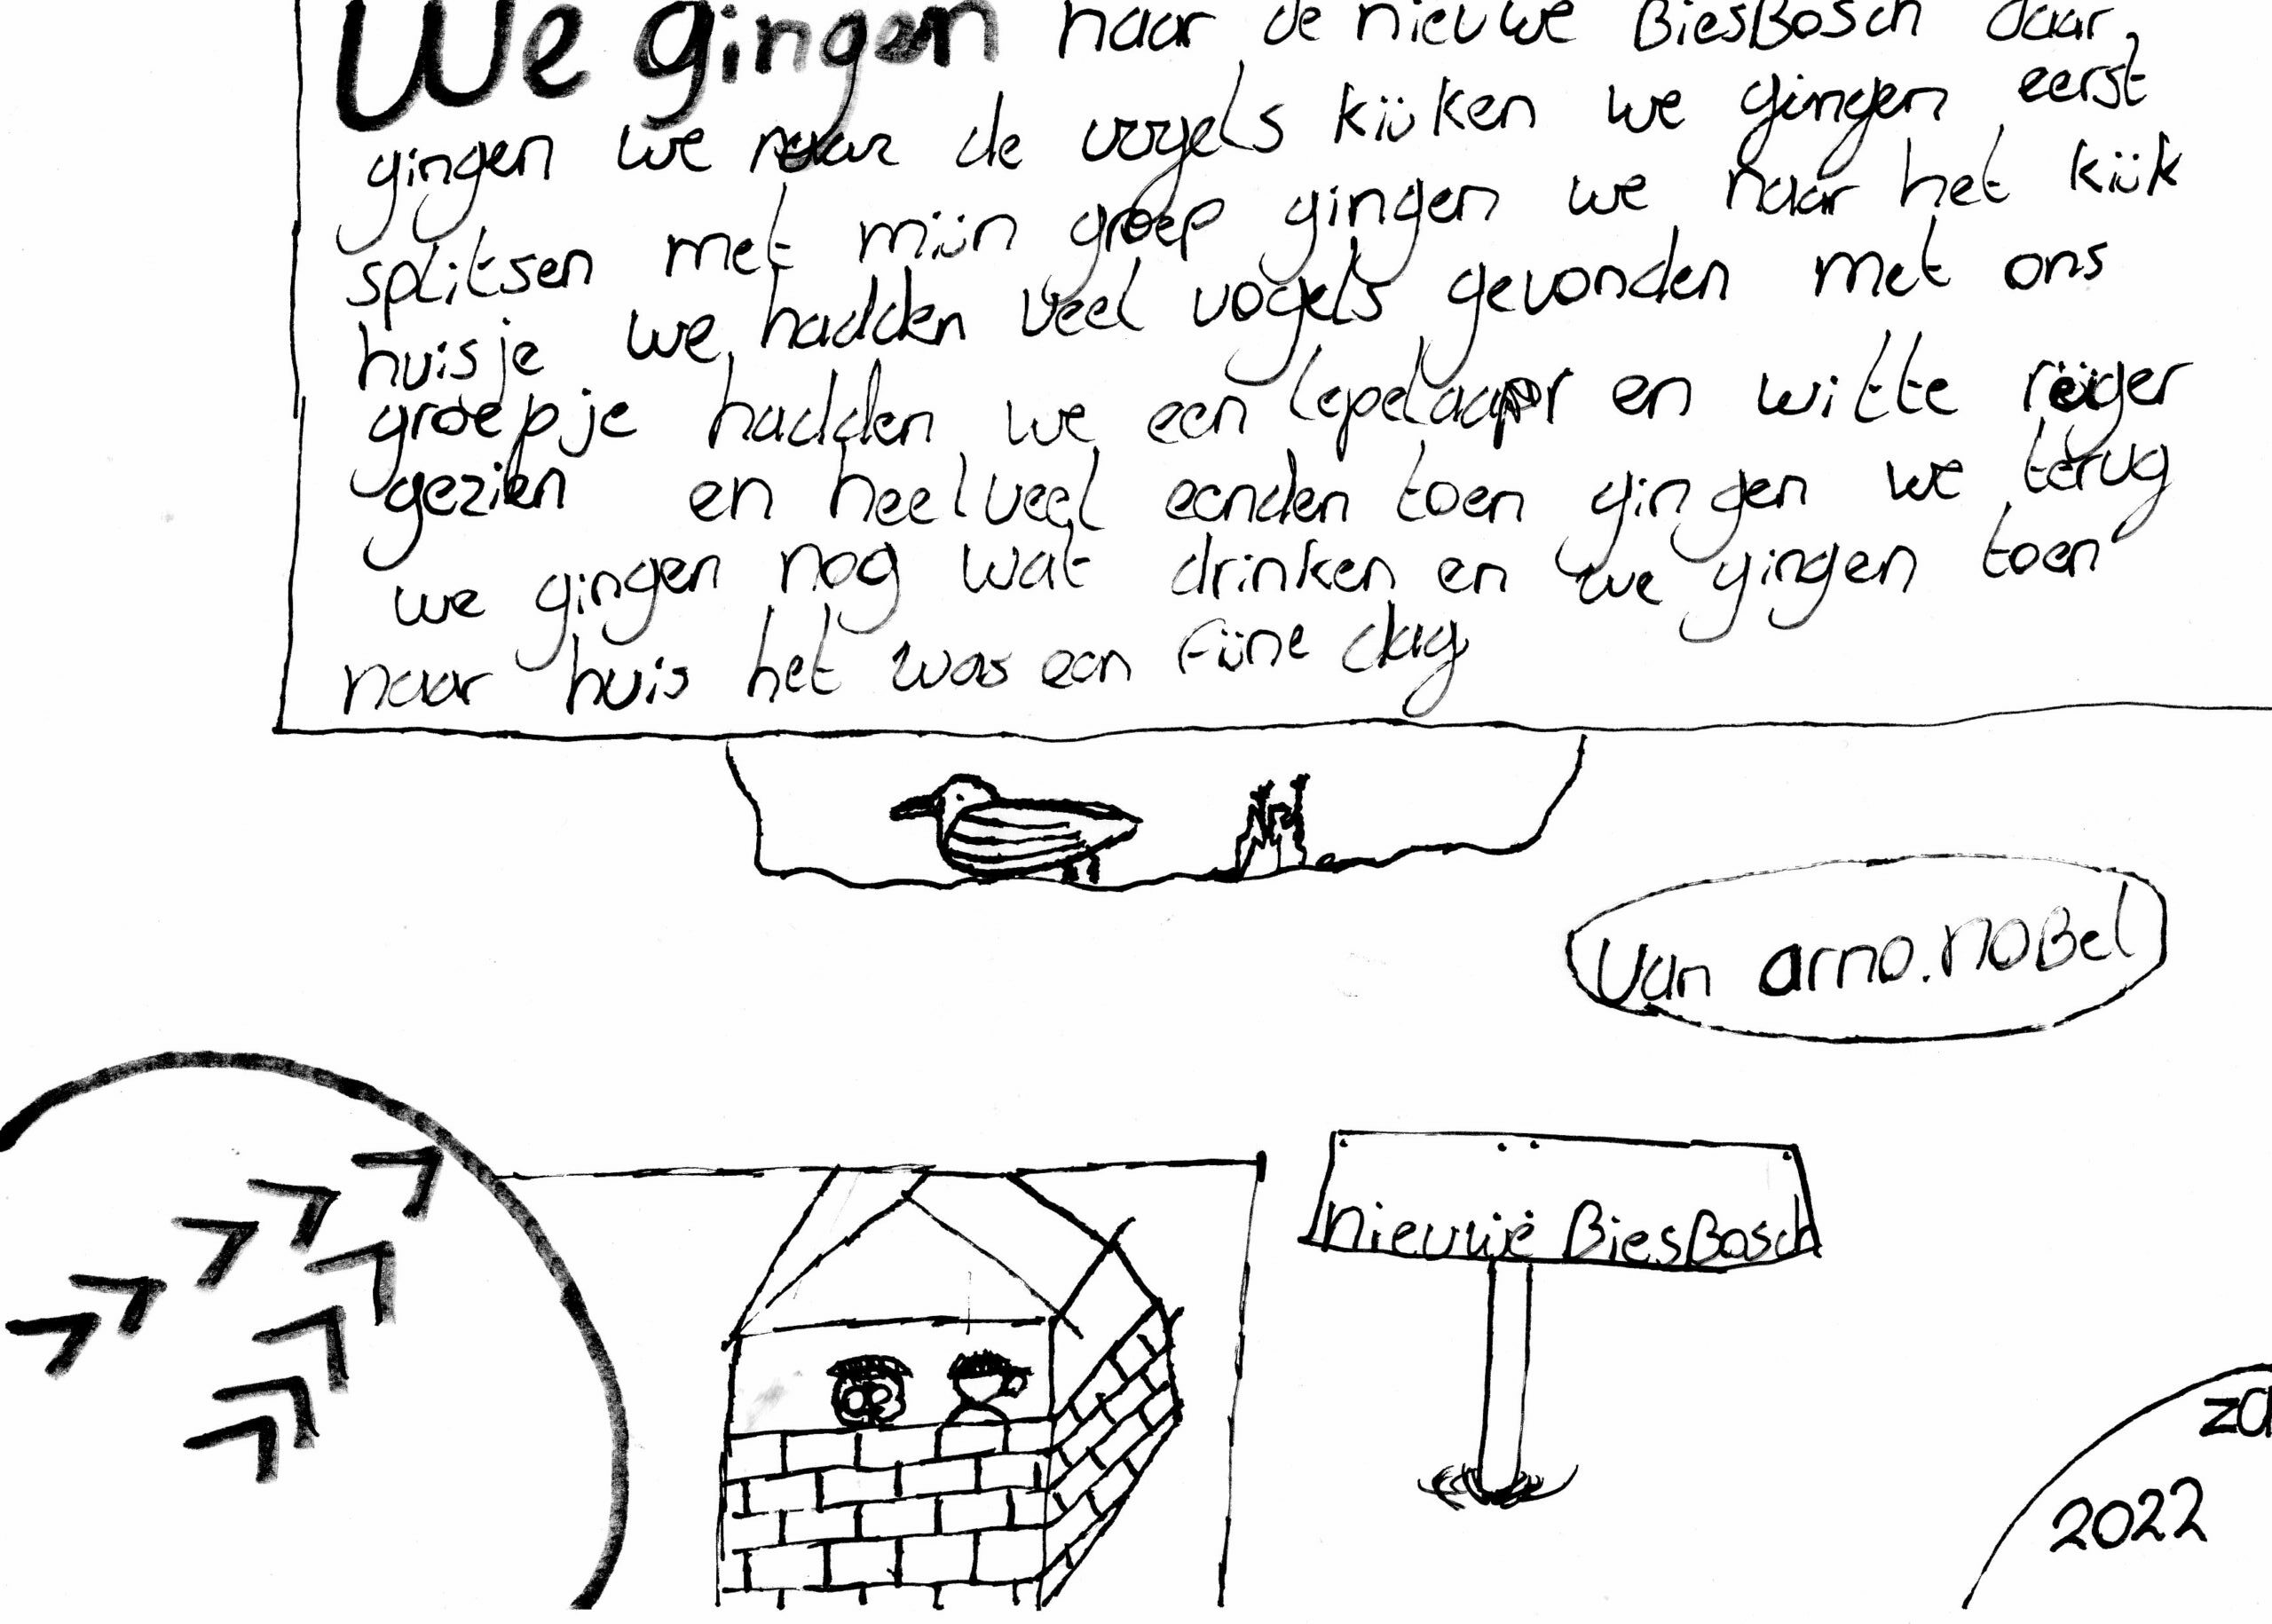 We gingen naar de nieuwe BiesBosch daar
gingen we naar de vogels kijken we gingen eerst
splitsen met mijn groep gingen we naar het kijk
huisje we hadden veel vogels gevonden met ons
groepje hadden we een lepelaar en witte reiger
gezien en heel veel eenden toen gingen we terug
we gingen nog wat drinken en we gingen toen
naar huis het was een fijne dag
Van arno.noBel
nieuwe BiesBosch
2022